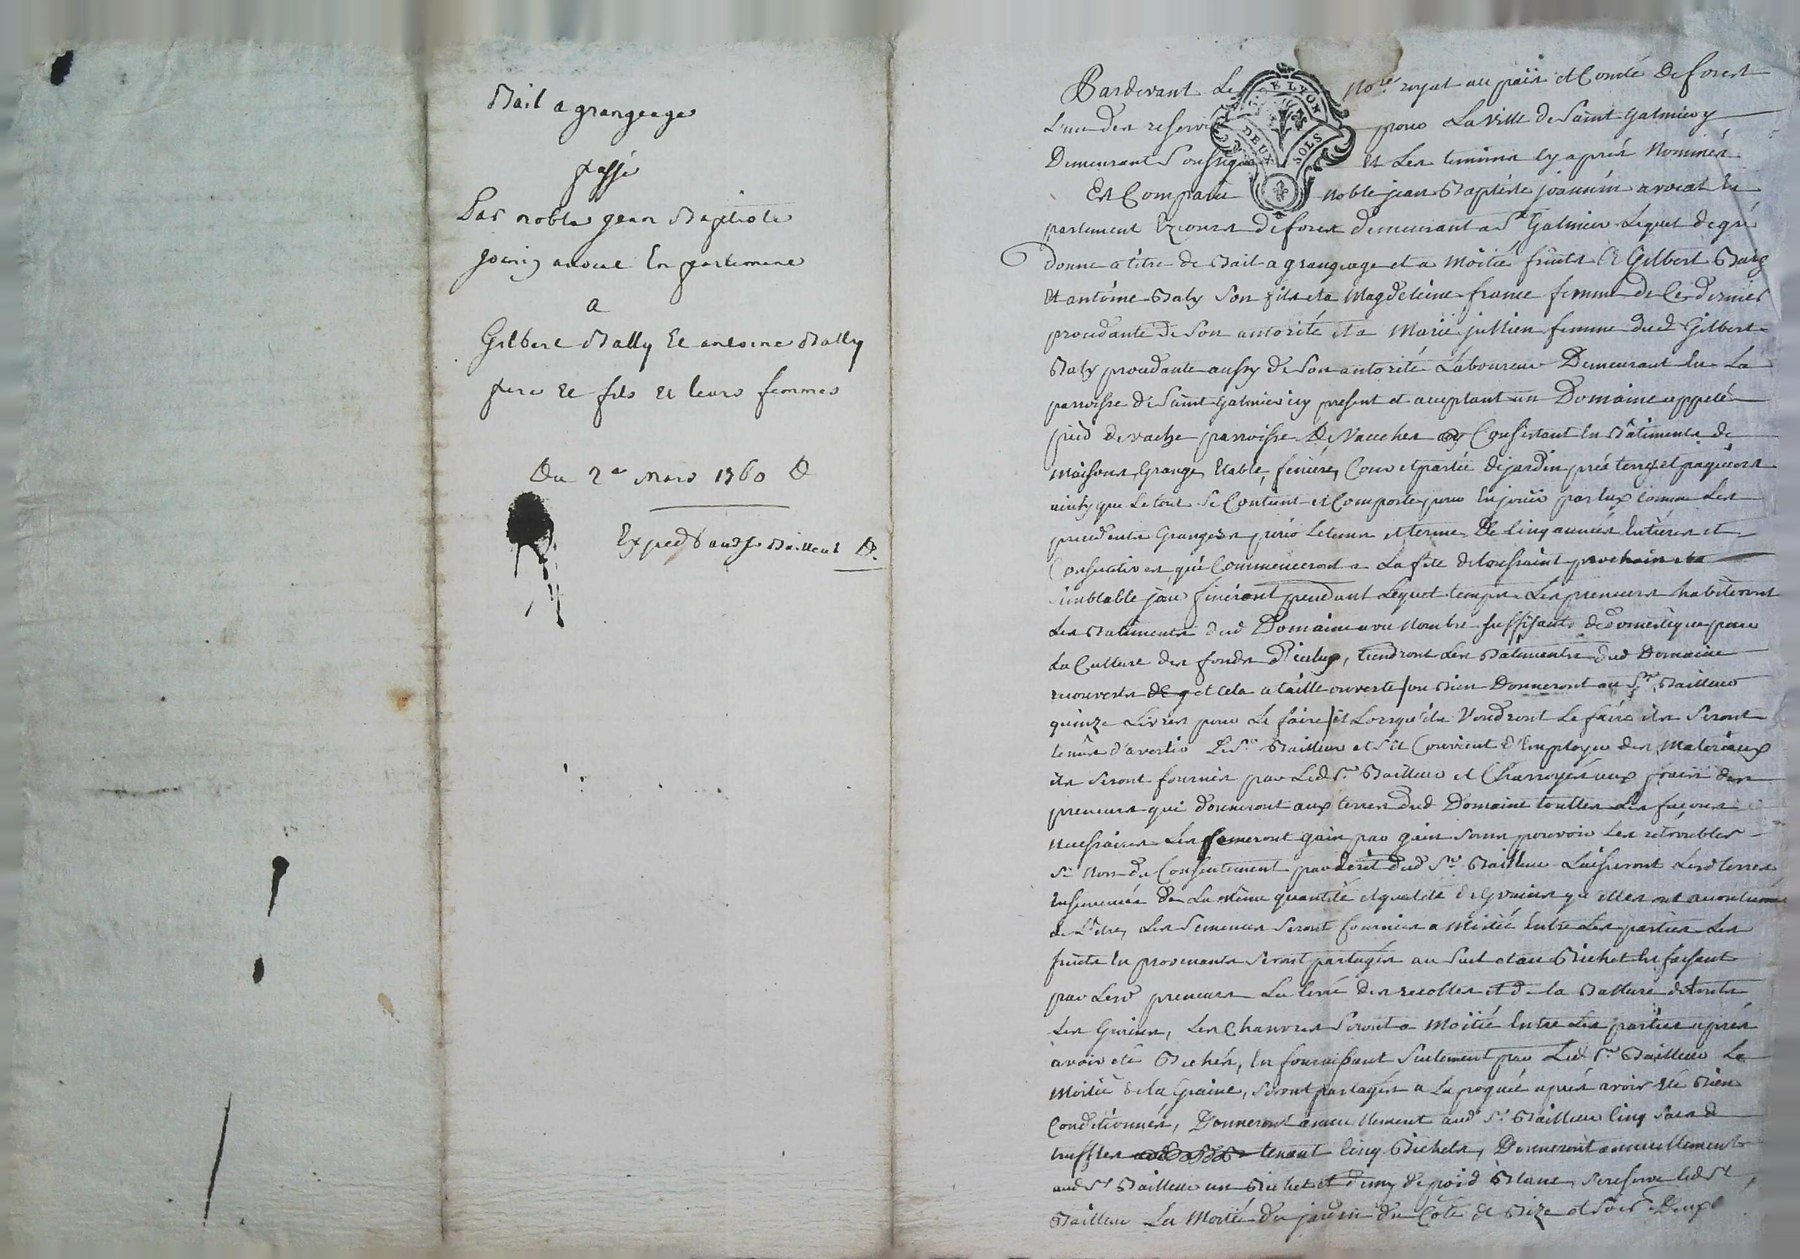 Bail a grangeage
passé
Par noble jean Baptiste
joanin avocat En parlement
a
Gilbert Bally Et antoine Bally
pere Et fils Et leurs femmes
Du 2e mars 1760
Exped audsr Bailleur
Pardevant Le Nore royal au païs et Comté De forest
L'un des reservés pour La Ville de Saint Galmier y
Demeurant Soussigné Et Les temoins Cy aprés Nommés
Est Comparu noble jean Baptiste joannin avocat En
parlement Ez cours de forest demeurant a St Galmier Lequel de gré
donne a titre de Bail a grangeage et a Moitié fruits a Gilbert Baly
Et antoine Baly Son fils et a Magdeleine france femme de Ce dernier
procedante de Son autorité et a Marie jullien femme dud Gilbert
Baly procedante aussy de Son autorité Laboureur Demeurant En La
parroisse de Saint Galmier icy present et acceptant un Domaine appelé
pied de vache parroisse De Consistant En Bâtiments de
Maisons, Grange, Etable, feniere, Cour et partie de jardin prés terres et paquiers
ainsy que Le tout Se Contient et Comporte pour En jouir par Eux Comme Les
precedents Grangers pour Le tems et terme De Cinq années Entieres et
Consecutives, qui Commenceront a La fête de toussaint prochain et a
semblable jour finiront pendant Lequel temps Les preneurs habiteront
Les Batiments dud Domaine avec Nombre Suffisants de domestique pour
La Culture des fonds D'icelux, tiendront Les Batiments dud Domaine
recouverts et Cela a taille ouverte / ou Bien Donneront au Sr Bailleur
quinze Livres pour Le faire / et Lorsqu'ils Voudront Le faire ils Seront
tenûs d'avertir Le Sr Bailleur et S'il Convient d'Employer des Materiaux
ils Seront fournis par Led Sr Bailleur et Charroyés aux frais des
preneurs qui donneront aux terres dud Domaine touttes Les façons
Necessaires Les Semeront gain par gain Sans pouvoir Les retroubler
Si Non du Consentement par Ecrit dud Sr Bailleur Laisseront Lesd terres
Ensemencés De La même quantité et qualité de Grains qu'elles ont accoutumé
de L'être, Les Semences Seront fournies a Moitié Entre Les parties Les
fruits En provenants Seront partagés au Suel et au Bichet En faisant
par Lesd preneurs La levée des recoltes et de la Batture de touts
Les Grains, Les Chanvres Seront a Moitié Entre Les parties aprés
avoir été Sechés, En fournissant Seulement par Led Sr Bailleur La
Moitié de la Graine, Seront partagés a La pognée aprés avoir Eté Bien
Conditionnés, Donneront annuellement aud Sr Bailleur Cinq Sacs de
truffles tenant Cinq Bichets, Donneront annuellement
aud Sr Bailleur un Bichet et demy de poid Blanc, Se reserve led Sr
Bailleur La Moitié du jardin du Coté de Bize et Soir Deux
DE LYON
DEUX SOLS